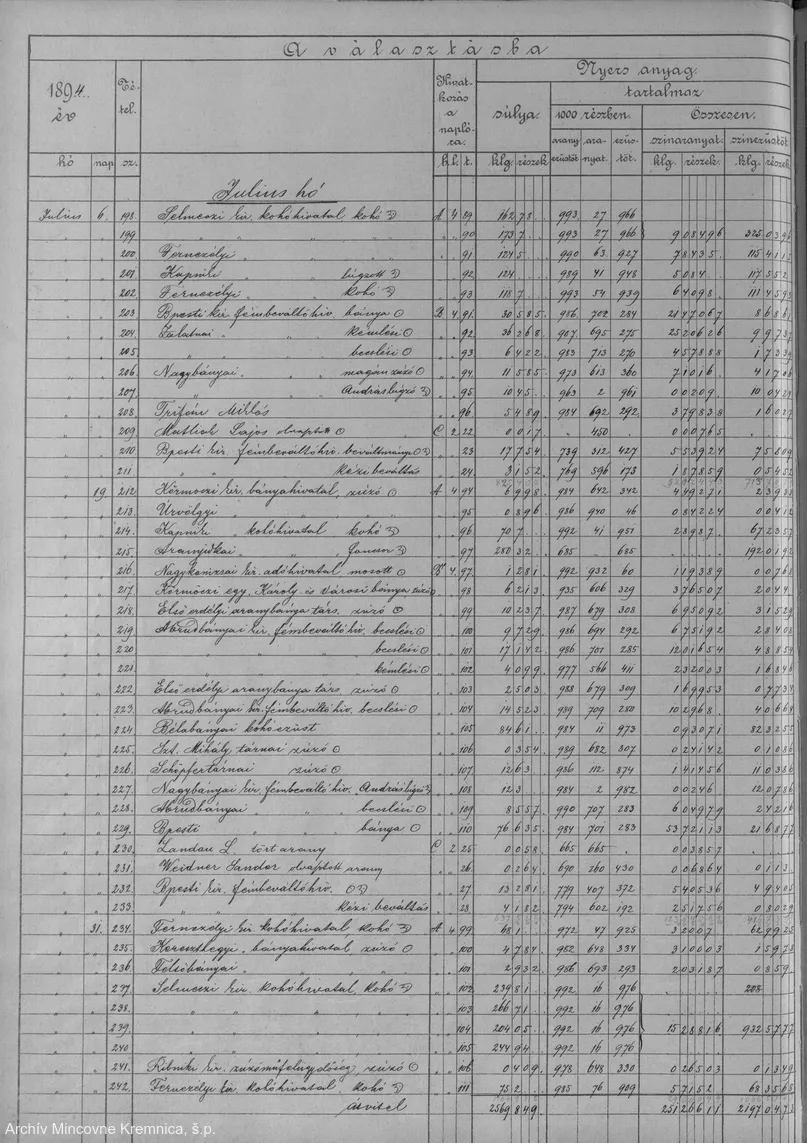 A választásba
1894. év Té-tel. Hivat-kozás a napló-ra. Nyers anyag.
súlya. tartalmaz
1000 részben. Összesen.
arany ezüstöt ara-nyat. ezüs-töt. színaranyat. színezüstöt
hó nap sz. k. l. t. klg. részek klg. részek. klg. részek.
Julius hó
Julius 6. 198. Selmeczi kir. kohóhivatal, kohó A 4 89 162 78 993 27 966
199 90 1737 993 27 966 908496
200. Fernezélyi 91 1245 990 63 927 78435
201 Kapniki lúgzott 92 124 989 41 948 5084 117552
202. Fernezélyi kohó 93 1187 993 54 939 64098
203. Bpesti kir. fémbeváltóhiv. bánya B 4 91 30585 986 702 284 2147067
204. Zalatnai kémlési 92 36268 695 275 2520626
205. becslési 93 6422 983 713 270 457888
206. Nagybányai magánzúzó 94 11585 973 613 360 71016
207. András lúgzó 95 1045 963 2 961 00209
208. Trifoni Miklós 96 5489 984 692 292 379838
209. olvasztott C 2 22 0017 450 000765
210. Bpesti kir. fémbeváltóhiv. beváltmány 23 17754 739 312 427 553924
211 kézi beváltás 24 3152 769 596 173 187859
19. 212 Körmöczi kir. bányahivatal, zúzó A 4 94 6998 984 642 342 449271
213. Úrvölgyi 95 0896 986 940 46 084224
214. Kapniki kohóhivatal kohó 96 707 992 41 951 28987
215. Aranyidkai foncsor 97 28032 685 685
216. Nagykanizsai kir. adóhivatal mosott B 4 97 1281 992 932 60 119389
217. Körmöczi egy. Károly és városi bánya zúzó 98 6213 935 606 329 376507
218. Első erdélyi aranybánya társ. zúzó 99 10237 987 679 308 695092
219. Abrudbányai kir. fémbeváltóhiv. becslési 100 9729 986 694 292 675192
220. becslési 101 17142 986 701 285 1201654
221. kémlési 102 4099 977 566 411 232003
222. Első erdélyi aranybánya társ. zúzó 103 2503 988 679 309 169953
223. Abrudbányai kir. fémbeváltóhiv. becslési 104 14523 989 709 280 102968
224. Bélabányai kohóezüst 105 8461 984 11 973 093071
225. Szt. Mihály tárnai zúzó 106 0354 989 682 307 024142
226. Schöpfertárnai zúzó 107 1263 936 112 874 141456
227. Nagybányai kir. fémbeváltó hiv. 108 123 984 2 982 00246
228. Abrudbányai becslési 109 8557 990 707 283 604979
229. Bpesti bánya 110 76635 984 701 283 5372113
230. Landau L. tört arany C 2 25 0058 665 665 003857
231. Weidner Sandor olvasztott arany 26 0264 690 260 430 006864
232. Bpesti kir. fémbeváltóhiv. 27 13281 779 407 372 540536
233. kézi beváltás 28 4182 794 602 192 251756
31. 234. Fernezélyi kir. kohóhivatal, kohó A 4 99 681 972 47 925 32007
235. Kereszthegyi bányahivatal, zúzó 100 4784 982 648 334 310003
236. Felsőbányai 101 2932 986 693 293 203187
237. Selmeczi kir. kohóhivatal, kohó 102 23981 992 16 976
238. 103 26671 992 16 976
239. 104 20405 992 16 976 1528816
240. 105 24494 992 16 976
241. Ribniki kir. zúzóműfelügyelőség, zúzó 106 0409 978 648 330 026503
242. Fernezélyi kir. kohóhivatal, kohó 111 752 985 76 909 57152
átvitel 2569849 25126611
Archív Mincovne Kremnica, š.p.